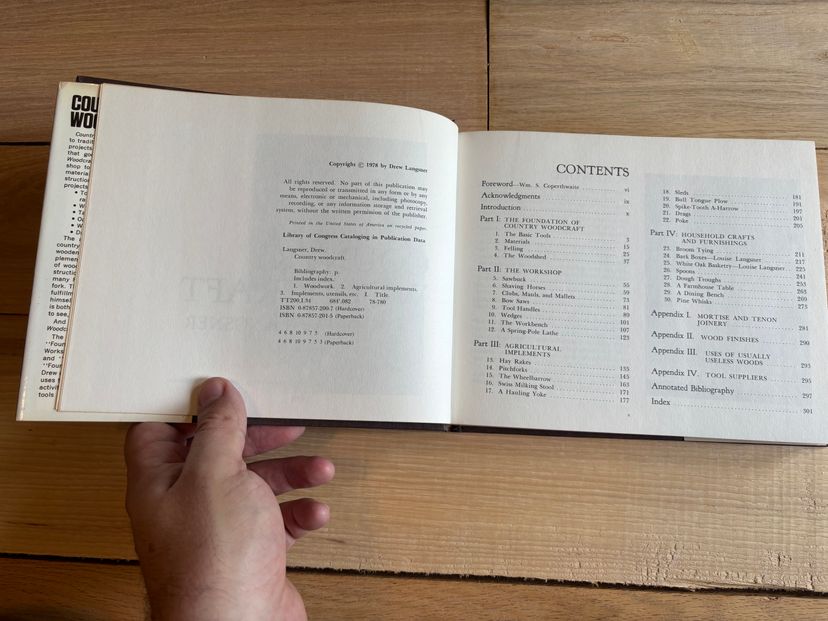 COU
WO
Country
to tradit
projects
that go
Woodc
shop to
materia
struction
projects
• T
ra
• W
• Ta
• Op
• W
• D
The
country
wooden
plemen
of woo
struction
many
fork. T
fulfillin
himself
is both
to see,
And
Woodc
The
"Foun
Works
and "
"Foun
Drew
uses
activi
tools
FT
NER
Copyright © 1978 by Drew Langsner
All rights reserved. No part of this publication may
be reproduced or transmitted in any form or by any
means, electronic or mechanical, including photocopy,
recording, or any information storage and retrieval
system, without the written permission of the publisher.
Printed in the United States of America on recycled paper.
Library of Congress Cataloging in Publication Data
Langsner, Drew.
Country woodcraft.
Bibliography: p.
Includes index.
1. Woodwork. 2. Agricultural implements.
3. Implements, utensils, etc. I. Title.
TT200.L34 684'.082 78-780
ISBN 0-87857-200-7 (Hardcover)
ISBN 0-87857-201-5 (Paperback)
4 6 8 10 9 7 5 (Hardcover)
4 6 8 10 9 7 5 3 (Paperback)
CONTENTS
Foreword—Wm. S. Coperthwaite vi
Acknowledgments ix
Introduction x
Part I: THE FOUNDATION OF
COUNTRY WOODCRAFT
1. The Basic Tools 3
2. Materials 15
3. Felling 25
4. The Woodshed 37
Part II: THE WORKSHOP
5. Sawbuck
6. Shaving Horses 55
7. Clubs, Mauls, and Mallets 59
8. Bow Saws 73
9. Tool Handles 81
10. Wedges 89
11. The Workbench 101
12. A Spring-Pole Lathe 107
123
Part III: AGRICULTURAL
IMPLEMENTS
13. Hay Rakes
14. Pitchforks 135
15. The Wheelbarrow 145
16. Swiss Milking Stool 163
17. A Hauling Yoke 171
177
18. Sleds
19. Bull Tongue Plow 181
20. Spike-Tooth A-Harrow 191
21. Drags 197
22. Poke 201
205
Part IV: HOUSEHOLD CRAFTS
AND FURNISHINGS
23. Broom Tying
24. Bark Boxes—Louise Langsner 211
25. White Oak Basketry—Louise Langsner 217
26. Spoons 225
27. Dough Troughs
28. A Farmhouse Table
29. A Dining Bench
30. Pine Whisks
273
Appendix I. MORTISE AND TENON
JOINERY
281
Appendix II. WOOD FINISHES
290
Appendix III. USES OF USUALLY
USELESS WOODS
293
Appendix IV. TOOL SUPPLIERS
295
Annotated Bibliography
297
Index
301